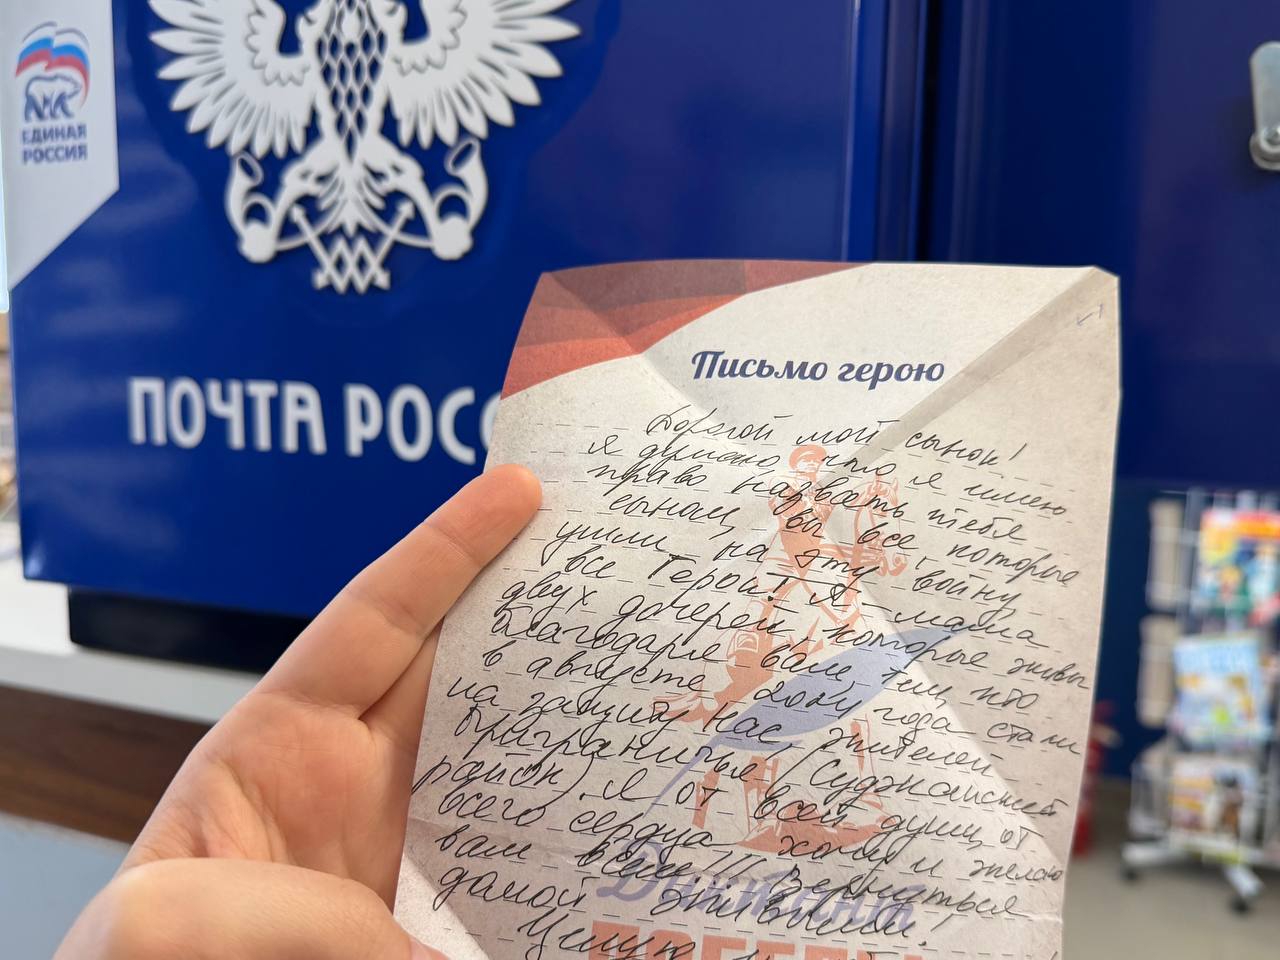 ЕДИНАЯ
РОССИЯ
ПОЧТА РОСС
Письмо герою
Дорогой мой сынок!
Я думаю, что я имею
право назвать тебя
сыном, вы все, которые
ушли на эту войну
все Герои! Я-мама
двух дочерей, которые живы
благодаря вам, тем, кто
в августе 2024 года стали
на защиту нас, жителей
Приграничья (Суджанский
район). Я от всей души, от
всего сердца хочу и желаю
вам всем!!! Вернуться
домой живыми!
Целую
Диктант
ПОБЕДЫ